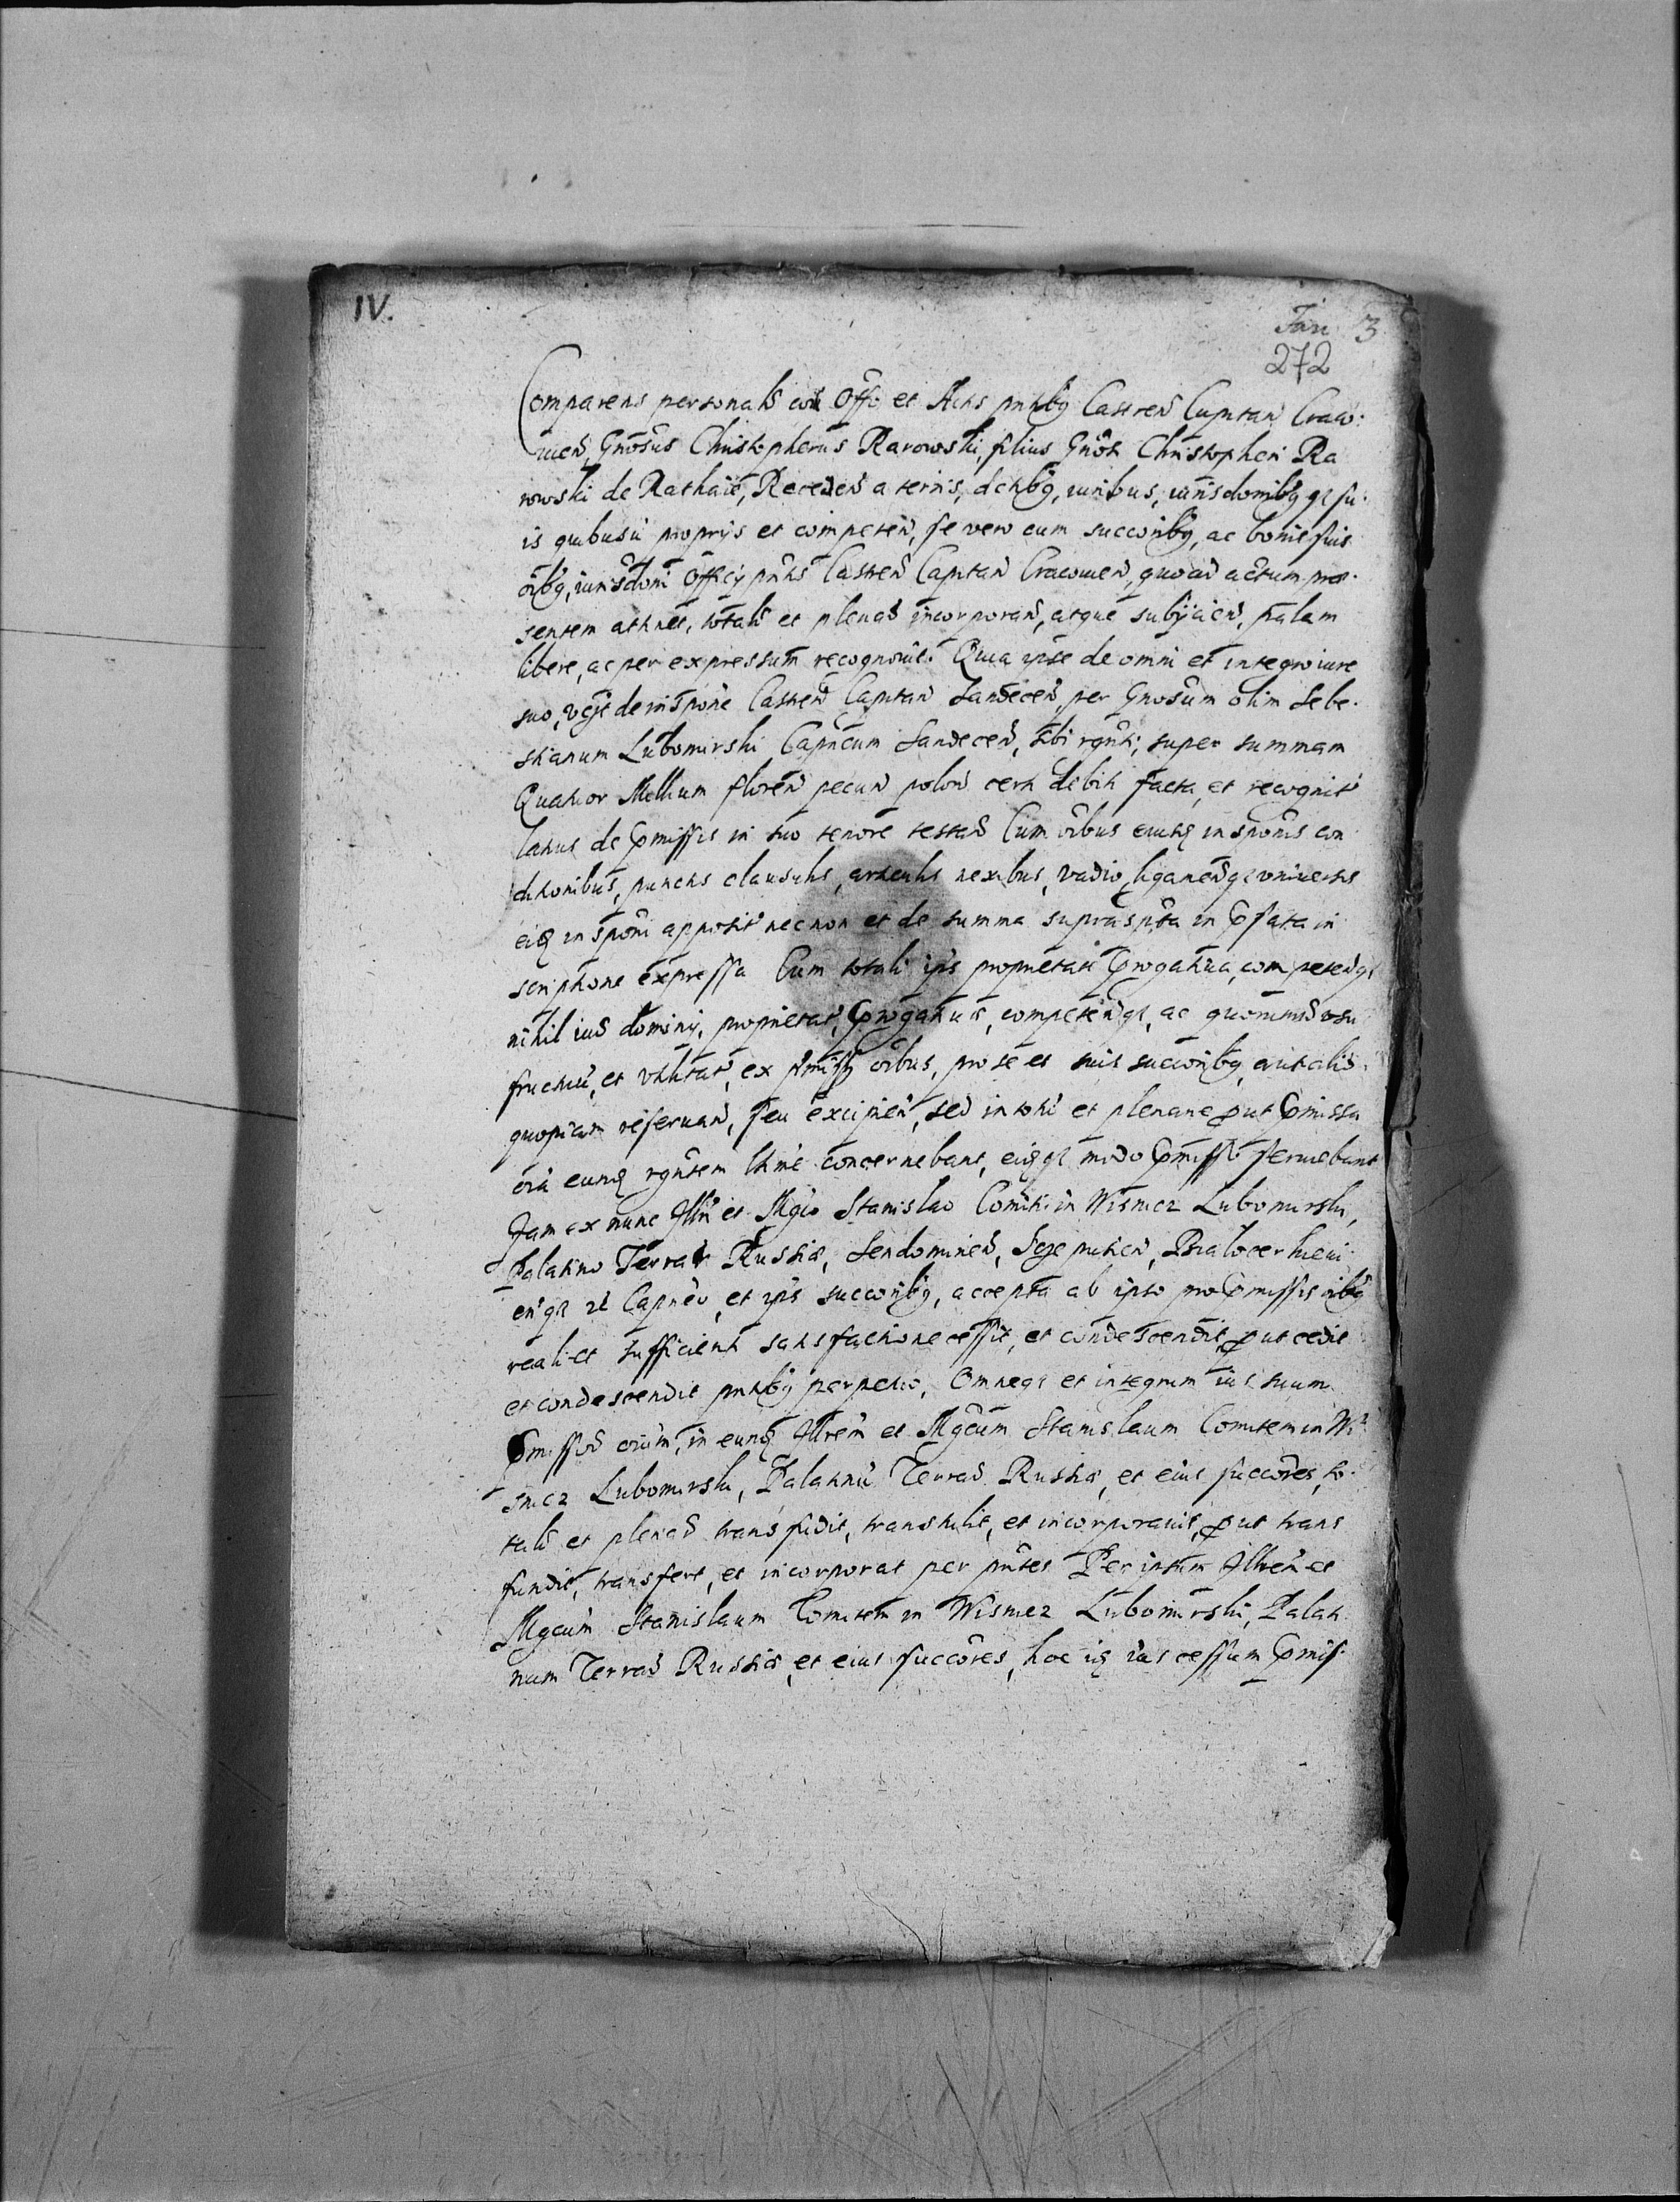 IV.
Jan 3
272
Comparens personalr̃ cor̃ Offo et Actis pntibg Castren̄ Capitan̄ Craco:
uien̄, Gnosus Christopherus Rarowski, filius Gnosi Christopheri Ra
rowski de Rathaie, Receden̄ a terris, dctibg, iuribus, iurisdonibg qz su:
is quibusũ proprijs et competen̄, se vero cum succoribg, ac bonis suis
oĩbg, iurisdoni Officij pñtis Castren̄ Capitan̄ Cracouien̄, quoad actum prae:
sentem attnet, totalr̃ et plenar̃ incorporan̄, atque subijcien̄, palam
libere, ac per expressum recognouit. Quia ipse de omni et integro iure
suo, de inspone Castren̄ Capitan̄ Sandecen̄, per Gnosum olim Seba:
stianum Lubomirski Capneum Sandecen̄, sibi rgnti, super summam
Quatuor Millium floren̄ pecun̄ polon̄ certi debiti facta, et recognit
latius de p̃missis in suo tenore testan̄ Cum oĩbus eiusq insponis con
ditionibus, punctis clausulis, articulis nexibus, vadio, ligamen̄ qz vniuersis
eiq inspõni apposit nec non et de summa suprasp̃ta in p̃fata in
scriptione expressa Cum totali ip̃s proprietate p̃rogatiua, competen̄qz
nihil iur̃ dominij, proprietat, p̃rogatiuae, competen̄qz, ac quorumuis vsu
fructuũ, et vtilitat, ex p̃miss̃ oĩbus, pro se et suis succorĩbg, aut aliũ
quopiam reseruan̄, seu excipien̄, sed in toto et plenarie put p̃missa
oĩa eunq rgntem concernebant, eiqqz modo p̃misso seruiebant
Jam ex nunc Illri et Mgco Stanislao Comiti in Wisnicz Lubomirski,
Palatino Terrar̃ Russiae, Sendomirien̄, Scepusien̄, Bialocerkieui
en̄ qz zc Capneo, et ip̃s succorĩbg, accepta ab ipso pro p̃missis oĩbg
reali et sufficienti satisfactione cessit, et condescendit, put cedit
et condescendit pntibg perpetuo, Omneqz et integrum ius suum
p̃missor̃ oiũm, in eunq Illrem et Mgcum Stanislaum Comitem in Wi
snicz Lubomirski, Palatinũ Terrar̃ Russiae, et eius succores, to:
talr̃ et plenar̃ transfudit, transtulit, et incorporauit, put trans
fundit, transfert, et incorporat per pntes Per ip̃sum Illrem et
Mgcum Stanislaum Comitem in Wisnicz Lubomirski, Palati
num Terrar̃ Russiae, et eius succores, hoc iq ius cessum p̃mis: